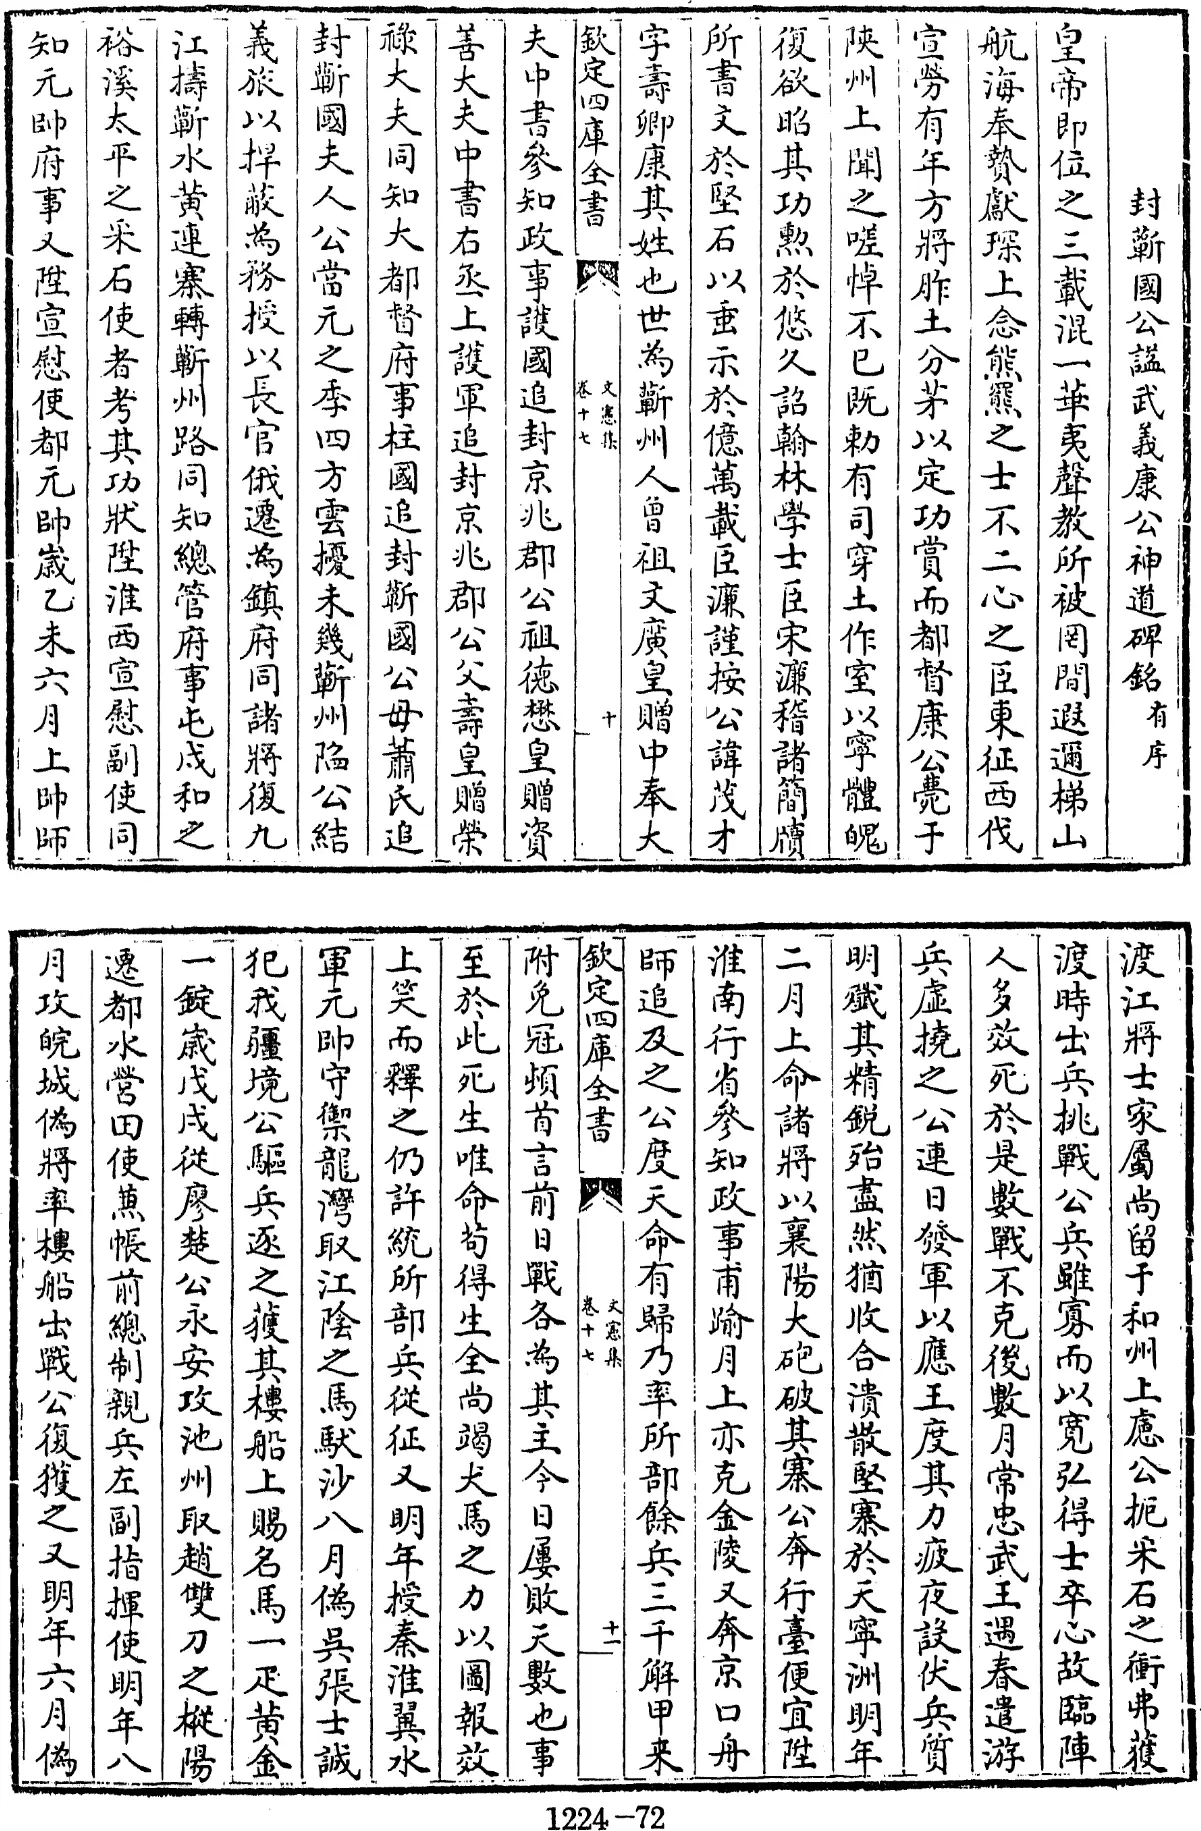 封蘄國公諡武義康公神道碑銘有序
皇帝即位之三載混一華夷聲教所被罔間遐邇梯山
航海奉贄獻琛上念熊羆之士不二心之臣東征西伐
宣勞有年方將胙土分茅以定功賞而都督康公薨于
陜州上聞之嗟悼不已既勅有司穿土作室以寧體魄
復欲昭其功勲於悠久詔翰林學士臣宋濂稽諸簡牘
所書文於堅石以垂示於億萬載臣濂謹按公諱茂才
字壽卿康其姓也世為蘄州人曾祖文廣皇贈中奉大
欽定四庫全書
文憲集
卷十七
十
夫中書參知政事護國追封京兆郡公祖德懋皇贈資
善大夫中書右丞上護軍追封京兆郡公父壽皇贈榮
祿大夫同知大都督府事柱國追封蘄國公母蕭氏追
封蘄國夫人公當元之季四方雲擾未幾蘄州陷公結
義旅以捍蔽為務授以長官俄遷為鎮府同諸將復九
江擣蘄水黄連寨轉蘄州路同知總管府事屯戍和之
裕溪太平之采石使者考其功狀陞淮西宣慰副使同
知元帥府事又陞宣慰使都元帥歳乙未六月上帥師
渡江將士家屬尚留于和州上慮公扼采石之衝弗獲
渡時出兵挑戰公兵雖寡而以寛弘得士卒心故臨陣
人多效死於是數戰不克後數月常忠武王遇春遣游
兵虛撓之公連日發軍以應王度其力疲夜設伏兵質
明殱其精銳殆盡然猶收合潰散堅寨於天寧洲明年
二月上命諸將以襄陽大砲破其寨公奔行臺便宜陞
淮南行省參知政事甫踰月上亦克金陵又奔京口舟
師追及之公度天命有歸乃率所部餘兵三千解甲来
欽定四庫全書
文憲集
卷十七
十一
附免冠頓首言前日戰各為其主今日屢敗天數也事
至於此死生唯命茍得生全尚竭犬馬之力以圖報效
上笑而釋之仍許統所部兵從征又明年授秦淮翼水
軍元帥守禦龍灣取江陰之馬馱沙八月偽吳張士誠
犯我疆境公驅兵逐之獲其樓船上賜名馬一疋黄金
一錠歳戊戌從廖楚公永安攻池州取趙雙刀之樅陽
遷都水營田使蒹帳前總制親兵左副指揮使明年八
月攻皖城偽將率樓船出戰公復獲之又明年六月偽
1224-72